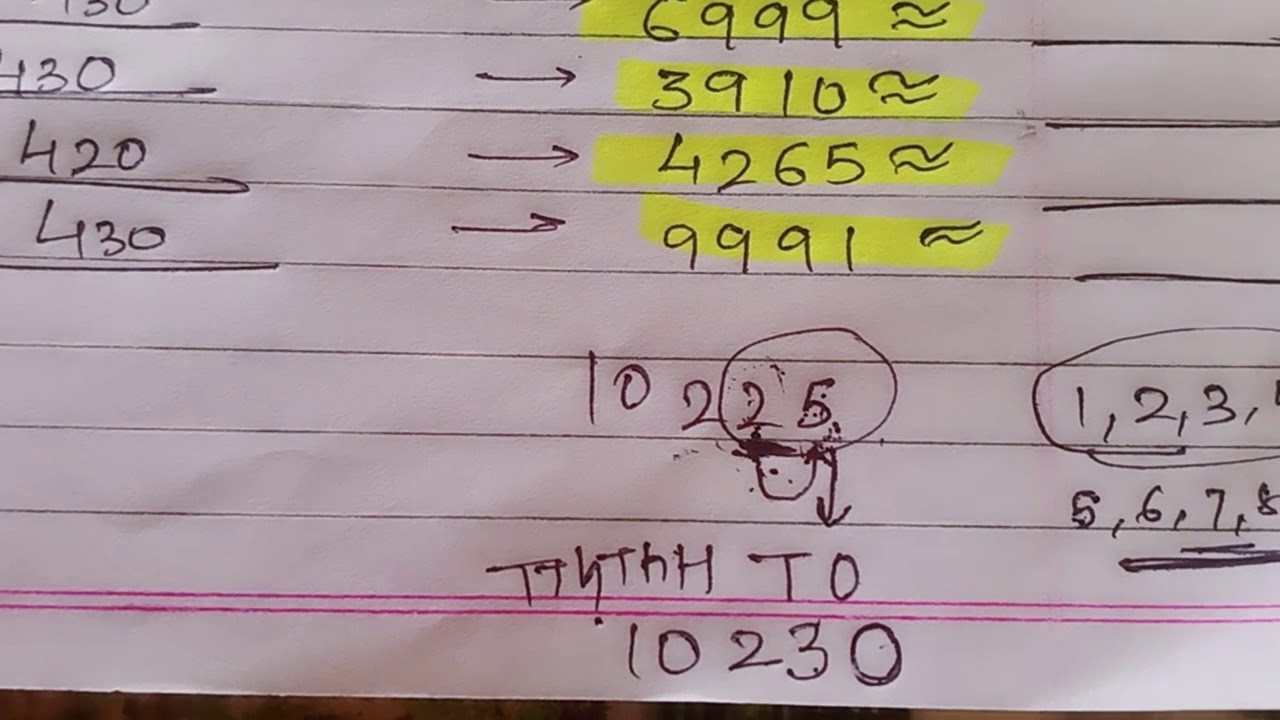 6999 ≈
430 → 3910 ≈
420 → 4265 ≈
430 → 9991 ≈
10 2 2 5
1, 2, 3,
5, 6, 7, 8
TTh Th H T O
10230